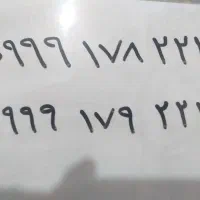 ۹۹۹ ۱۷۸ ۲۲
۹۹۹ ۱۷۹ ۲۲